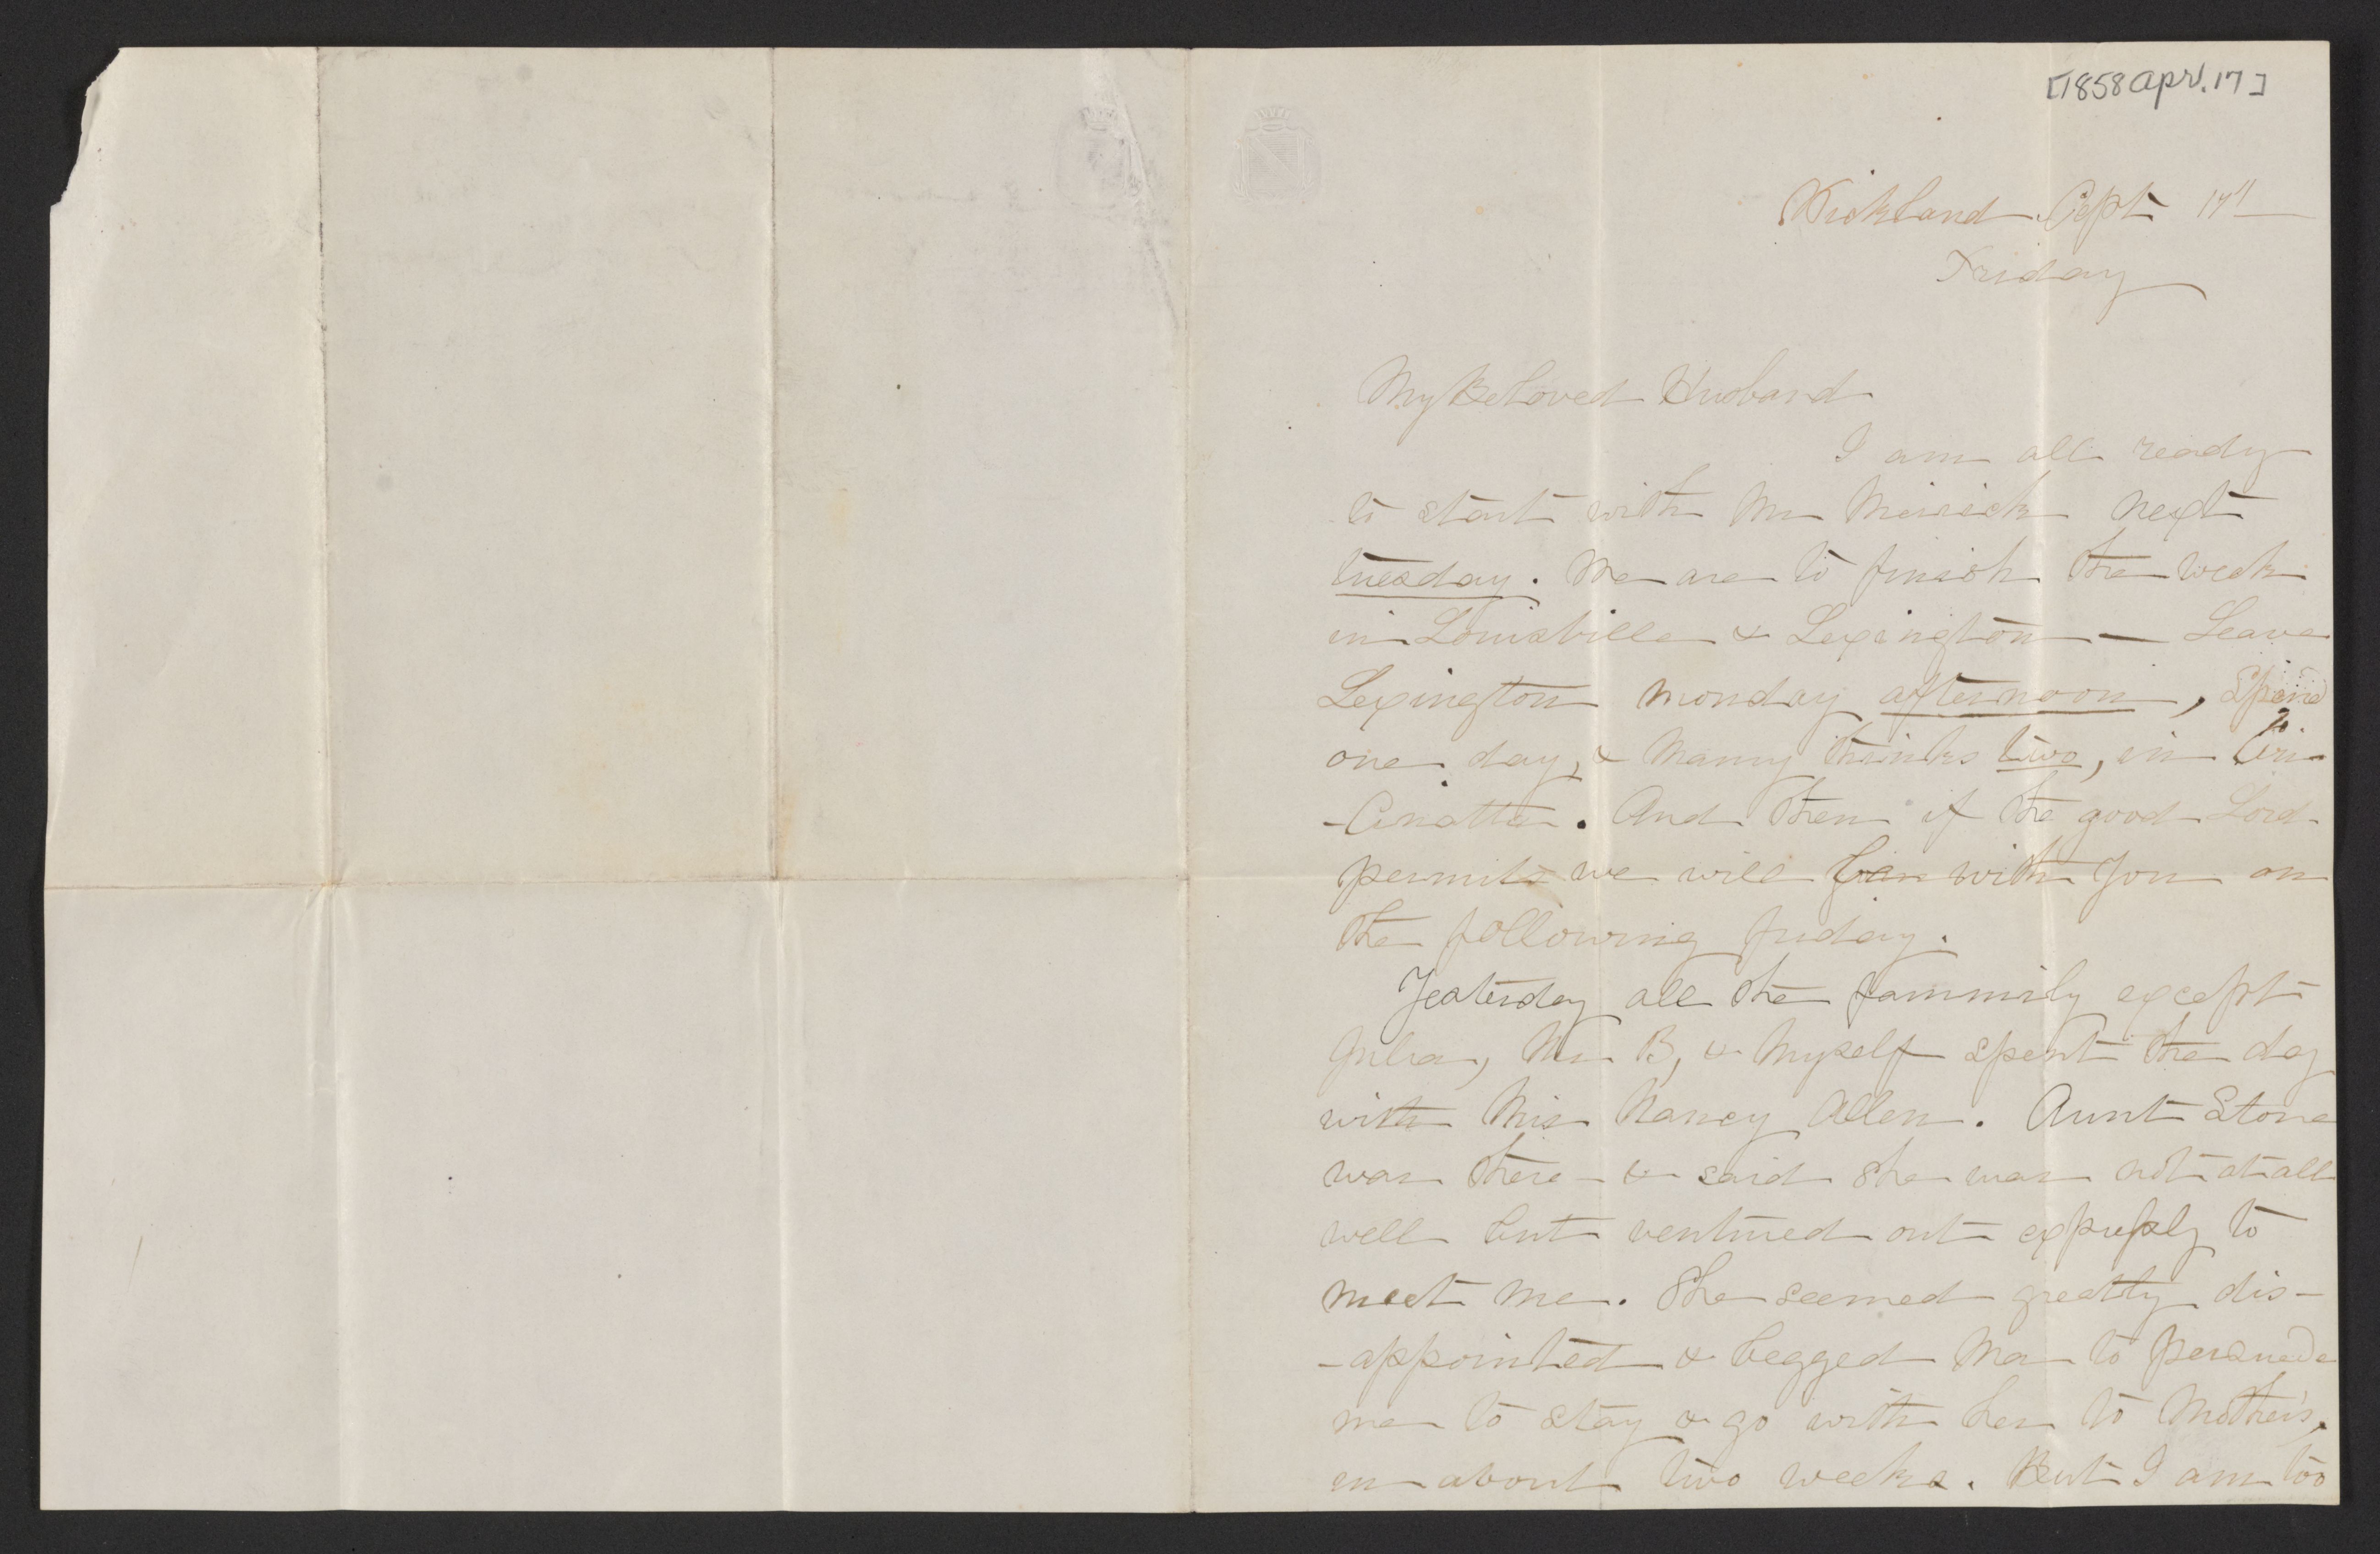 [1858 apr. 17]
Kirkland Sept 17"
Friday
My Beloved Husband
I am all ready
to start with Mr Meirick next
tuesday. We are to finish the week
in Louisville & Lexington — Leave
Lexington monday afternoon, Spend
one day, & Nanny thinks two, in Cin
-Cinatta. And then if the good Lord
permits we will be with you on
the following friday.
Yesterday all the fammily except
Julia, Mr B, & Myself spent the day
with Mis Nancy Allen. Aunt Stone
was there - & said she was not at all
well but ventured out expressly to
meet me. She seemed greatly dis-
-appointed & begged Ma to persuade
me to stay & go with her to Mother's,
in about two weeks. But I am too